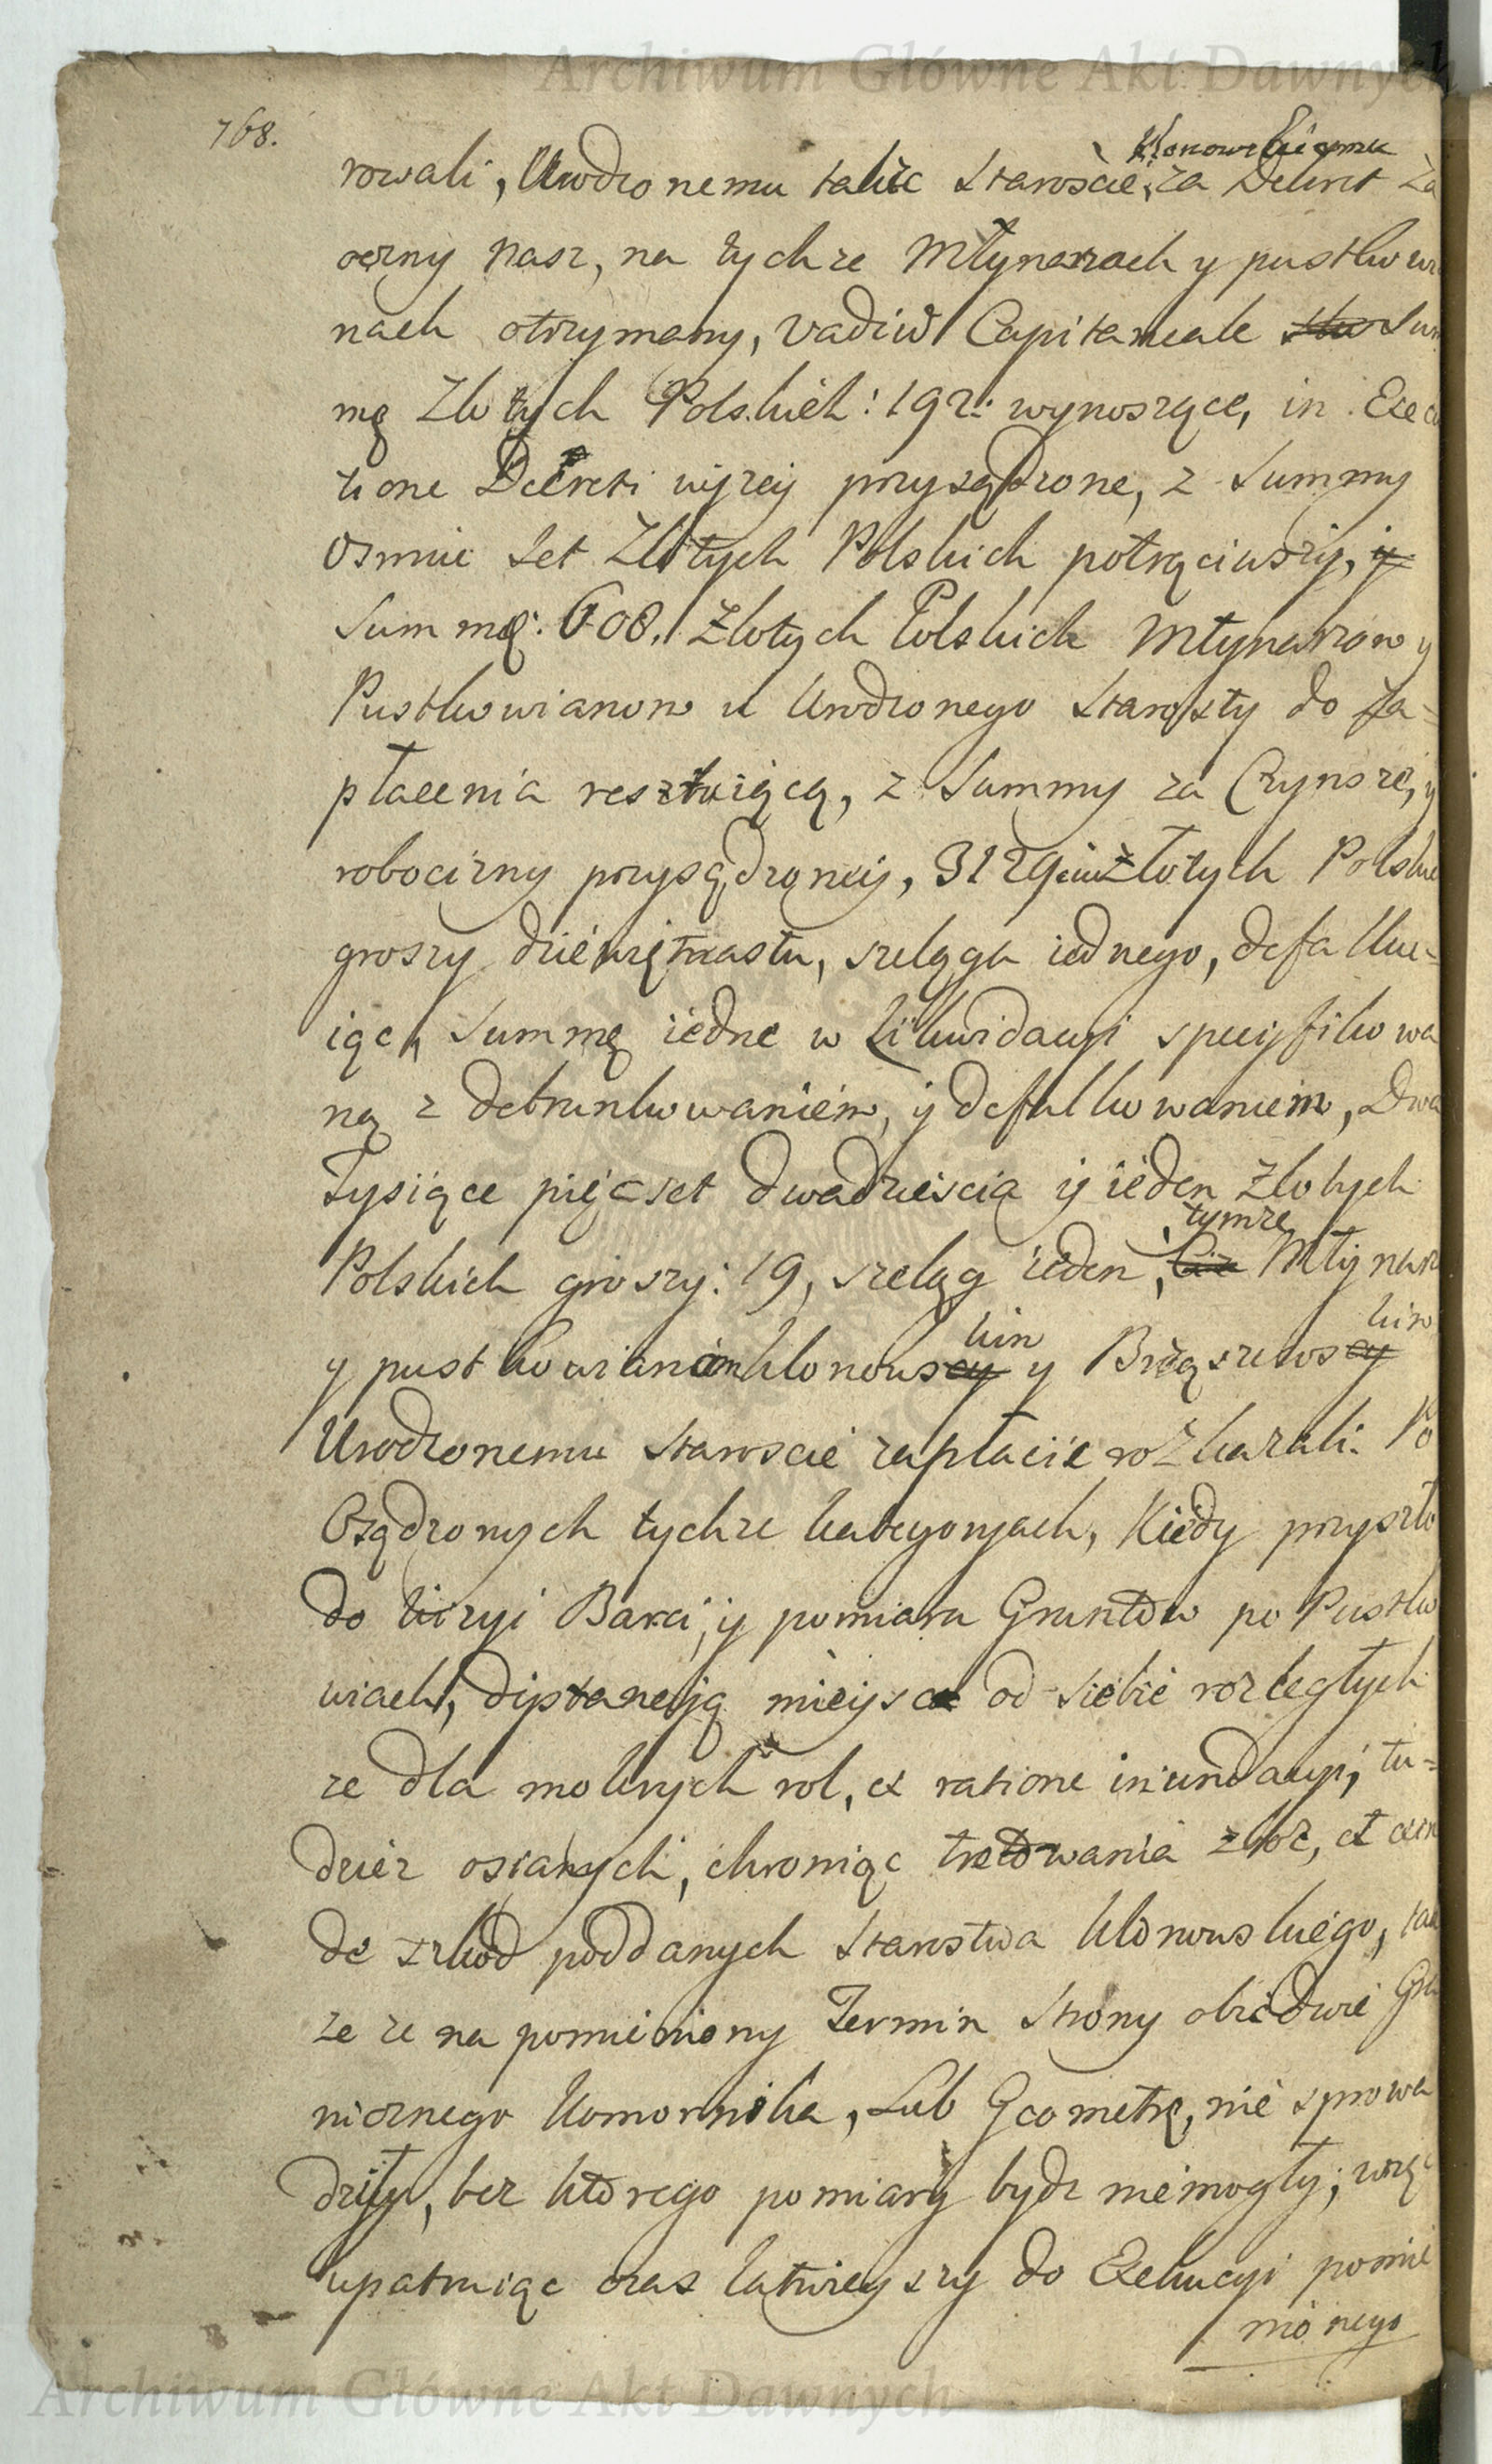 Archiwum Główne Akt Dawnych
768.
Klonowskiemu
rowali, Urodzonemu także Staroście, za Dekret Za
oczny nasz, na tychże Młynarzach y pustkowia
nach otrzymany, vadiū Capitaneale Sum
mę Złotych Polskich: 192: wynoszące, in Execu
tione Decreti wyżey przysądzone, z Summy
osmiu set Złotych Polskich potrąciwszy, y
Summę: 608. Złotych Polskich Młynarzow y
Pustkowianow u Urodzonego Starosty do za=
płacenia resztuiącą, z Summy za Czynsze, y
robocizny przysądzoney, 3129 Złotych Polskic
groszy dziewiętnastu, szeląga iednego, defalku=
iąc, Summę iedne w Likwidacyi specyfikowa
ną z detrunkowaniem, y defalkowaniem, Dwa
Tysiące pięcset dwadzieścia y ieden Złotych
tymże
Polskich groszy: 19, szeląg ieden, Młynarz
kim kim
y pustkowianom klonowscy y Brąszewscy
Urodzonemu Staroscie zapłacić rozkazali. Po
Osądzonych tychże kategoryach, Kiedy przyszło
do wizyi Barci, y pomiaru Gruntow po Pustko
wiach, dystancyą mieysca od siebie rozległych
że dla mokrych rol, et ratione inundacyi, tu=
dzież osianych, chroniąc tratowania zboż, et cum
de szkod poddanych Starostwa klonowskiego, tak
że że na pomieniony Termin Strony obiedwie Gra
nicznego Komornika, Lub Geometrę, nie sprowa
dziły, bez ktorego pomiary bydz niemogły; więc
upatruiąc czas łatwieyszy do Exekucyi pomie
nionego
Archiwum Główne Akt Dawnych